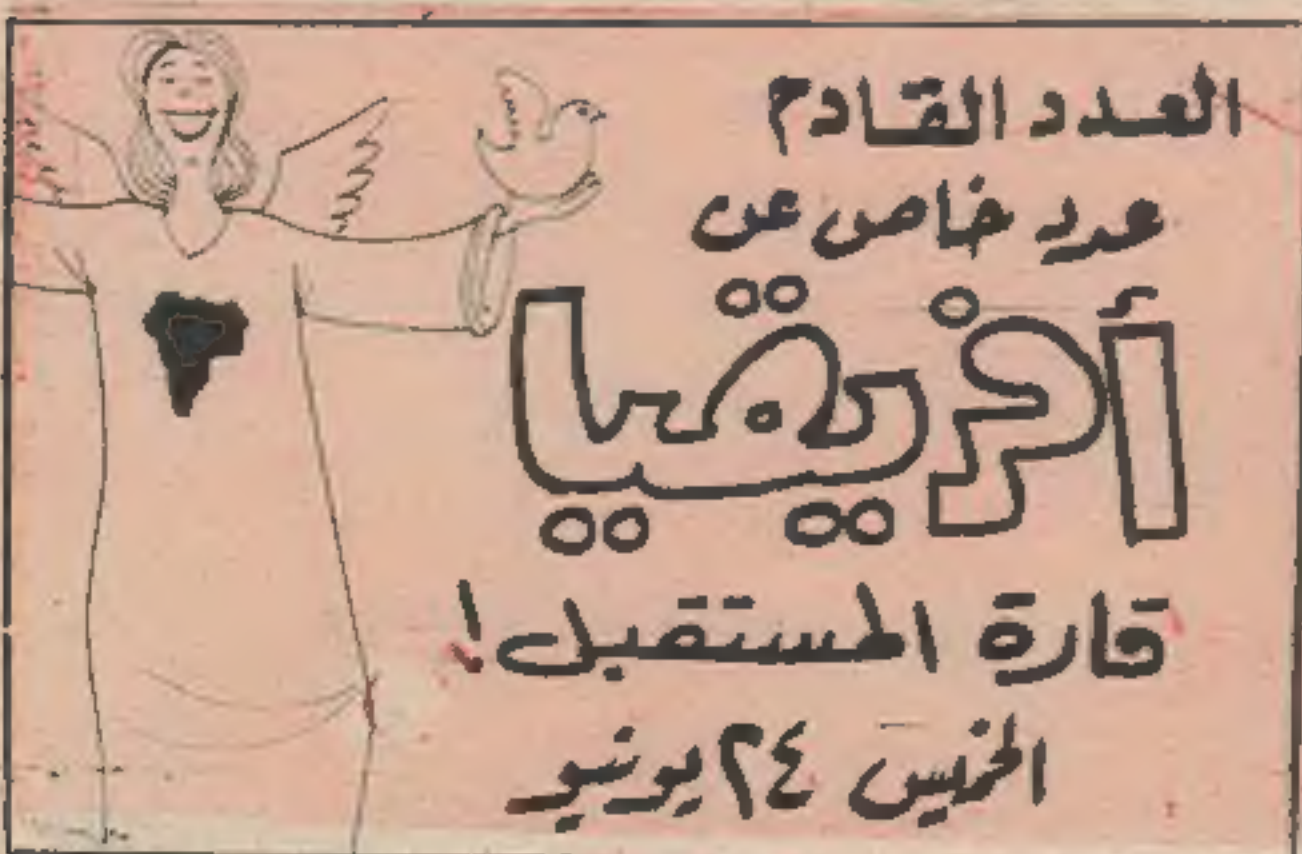 العدد القادم
عدد خاص عن
أفريقيا
قارة المستقبل!
الخميس ٢٤ يونيو